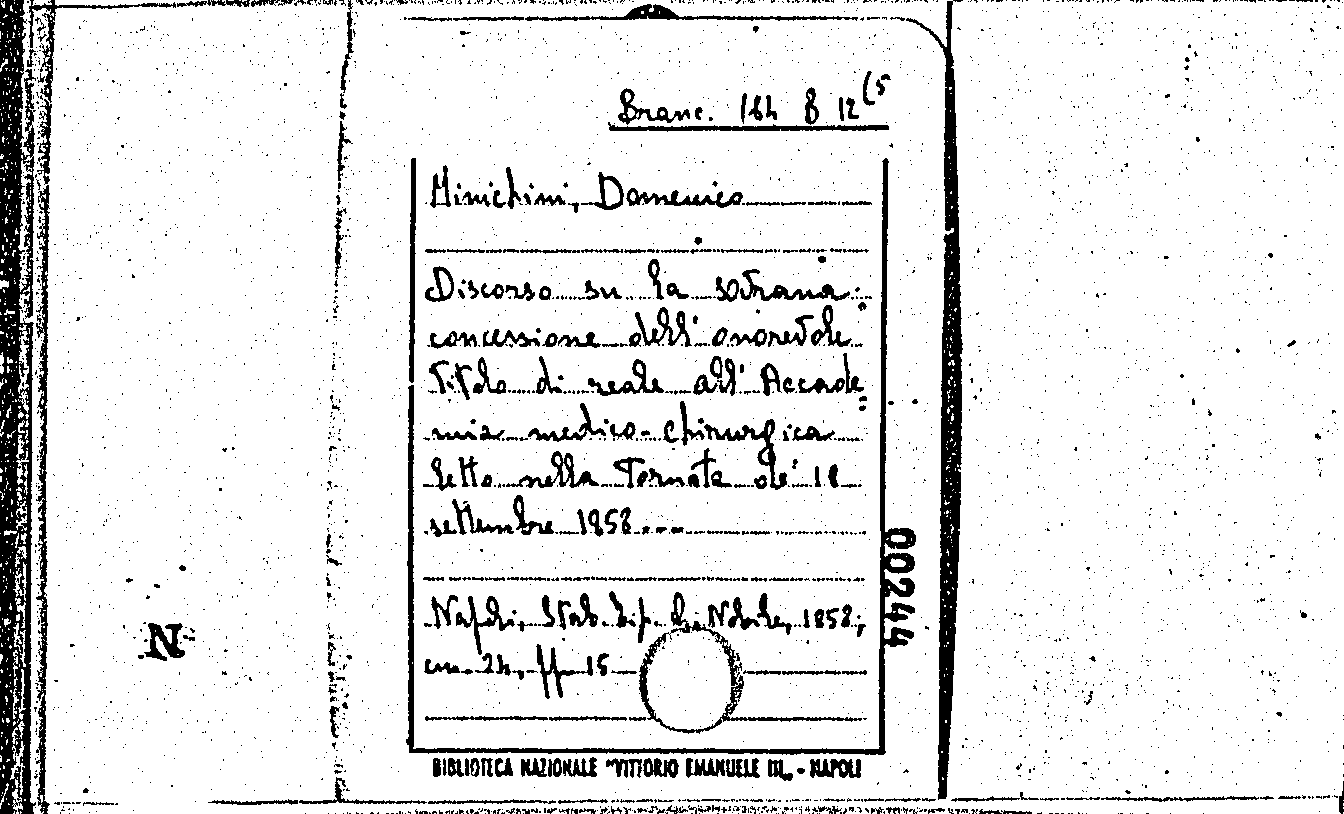 Branc. 164 B 12 (5
Minichini, Domenico
Discorso su la sovrana
concessione dell' onorevole
titolo di reale all' Accade=
mia medico-chirurgica
letto nella tornata de' 18
settembre 1858...
Napoli, Stab. tip. G. Nobile, 1858,
cm. 24, pp. 15
BIBLIOTECA NAZIONALE "VITTORIO EMANUELE III„ - NAPOLI
00244
N